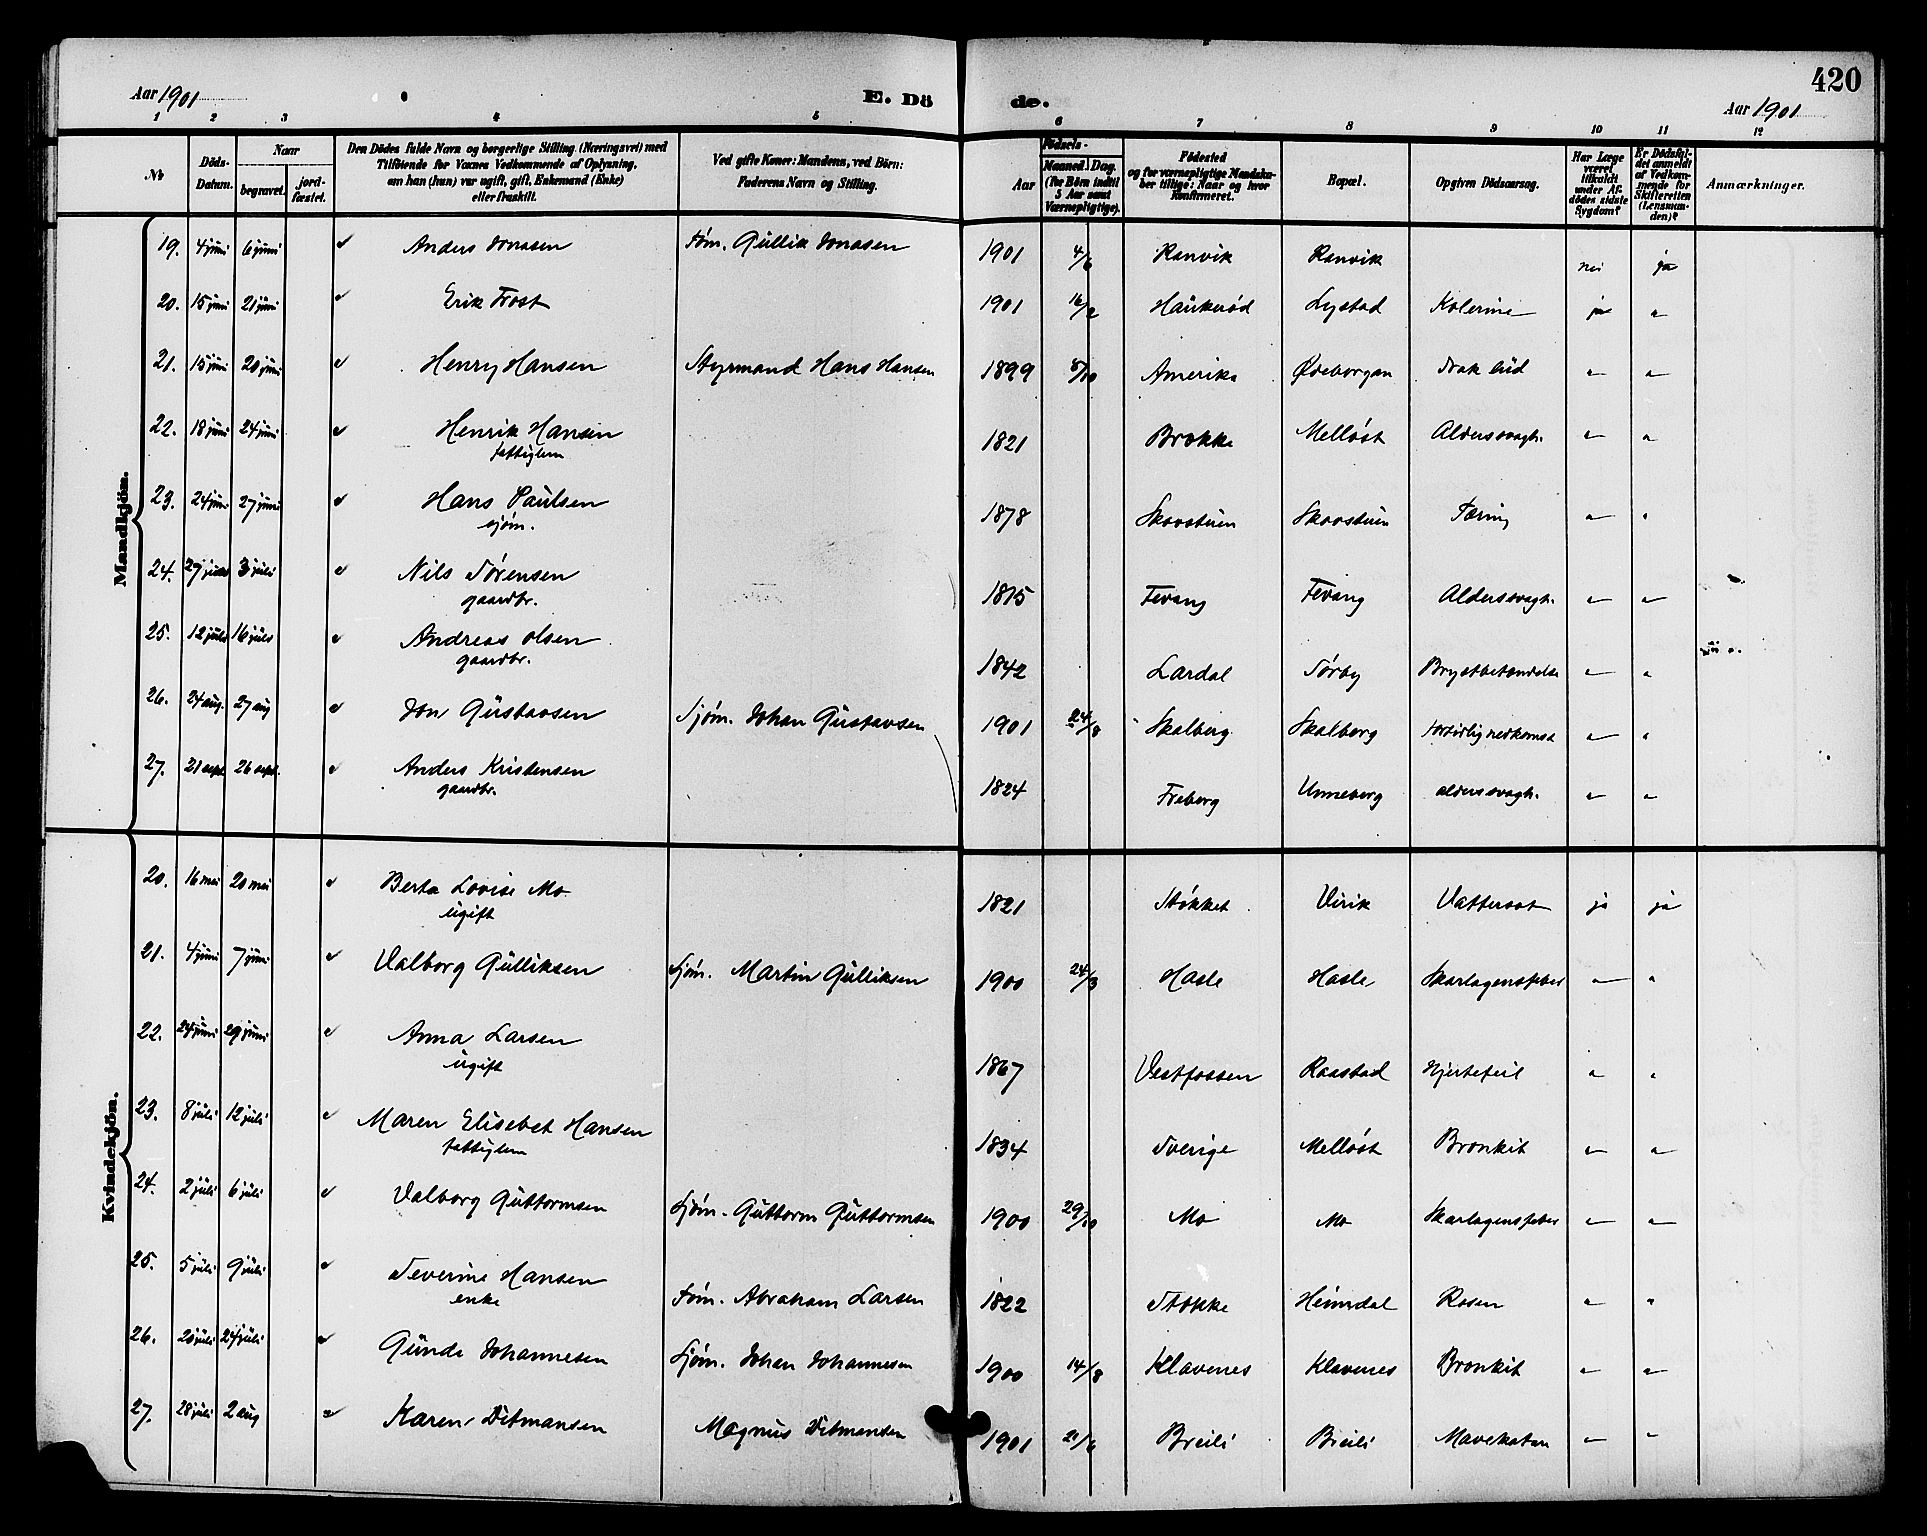 Aar 1901 E. Dö de. Aar 1901 420
1 2 3 4 5 6 7 8 9 10 11 12
№ Döds-Datum. Naar begravet. jord-fæstet. Den Dödes fulde Navn og borgerlige Stilling (Næringsvei) med Tilföiende for Voxnes Vedkommende af Oplysning, om han (hun) var ugift, gift, Enkemand (Enke) eller fraskilt. Ved gifte Koner: Mandens, ved Börn: Faderens Navn og Stilling. Aar Födsels- Maaned. Dag. (for Börn indtil 5 Aar samt Værnepligtige). Födested og for værnepligtige Mandskaber tillige: Naar og hvor Konfirmeret. Bopæl. Opgiven Dödsaarsag. Har Læge været tilkaldt under Afdödes sidste Sygdom? Er Dödsfaldet anmeldt af Vedkommende for Skifteretten (Lensmanden)? Anmærkninger.
Mandkjön.
19. 4 juni 6 juni Anders Jonasen Søm. Gullik Jonasen 1901 4/6 Ranvik Ranvik nei ja
20. 15 juni 21 juni Erik Frost 1901 16/2 Haukerød Lystad Kolerine ja "
21. 15 juni 20 juni Henry Hansen Styrmand Hans Hansen 1899 8/10 Amerika Ødeborgen " "
22. 18 juni 24 juni Henrik Hansen 1821 Brekke Melløst Alderssvagh. " "
fattiglem
23. 24 juni 27 juni Hans Paulsen 1878 Skovstuen Skovstuen Tæring " "
sjøm.
24. 27 juni 3 juli Nils Sørensen 1815 Fevang Fevang Alderssvagh. " "
gaardbr.
25. 12 juli 16 juli Andreas Olsen 1842 Lardal Sørby Brystbetændelse " "
gaardbr.
26. 24 aug. 27 aug Jon Gustavsen Sjøm. Johan Gustavsen 1901 24/8 Skalberg Skalberg fortidlig nedkomst " "
27. 21 sept. 26 sept. Anders Kristensen 1824 Freberg Unneberg alderssvagh. " "
gaardbr.
Kvindekjön.
20. 16 mai 20 mai Berta Lovise Mo 1821 Stokket Virik Vattersot ja ja
ugift
21. 4 juni 7 juni Valborg Gulliksen Sjøm. Martin Gulliksen 1900 24/3 Hasle Hasle Skarlagensfeber " "
22. 24 juni 29 juni Anna Larsen 1867 Vestfossen Raastad Hjertefeil " "
ugift
23. 8 juli 12 juli Maren Elisebet Hansen 1834 Sverige Melløst Bronkit " "
fattiglem
24. 2 juli 6 juli Valborg Guttormsen Sjøm. Guttorm Guttormsen 1900 29/10 Mo Mo Skarlagensfeber " "
25. 5 juli 9 juli Severine Hansen Søm. Abraham Larsen 1822 Stokke Heimdal Rosen " "
enke
26. 20 juli 24 juli Gunda Johannesen Sjøm. Johan Johannesen 1900 14/8 Klavenes Klavenes Bronkit " "
27. 28 juli 2 aug Karen Ditmansen Magnus Ditmansen 1901 21/6 Breili Breili Mavekatar " "